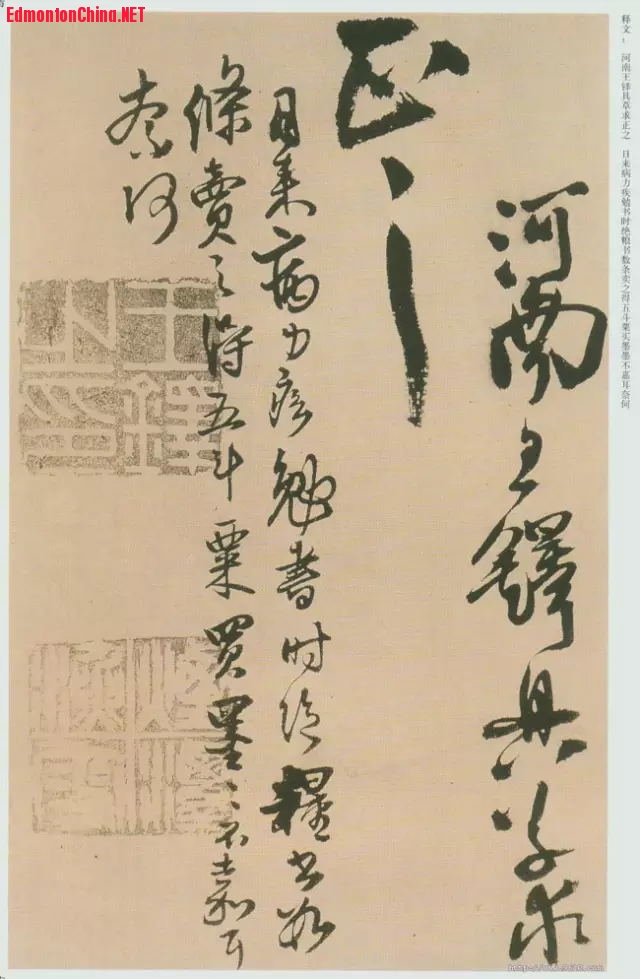 EdmontonChina.NET
释文： 河南王铎具草求正之 日来病力疾勉书时绝粮书数条卖之得五斗粟买墨墨不嘉耳奈何
河南王鐸具草求
正之
日来病力疾勉書时絕糧書數
條賣之得五斗粟買墨〻不嘉耳
柰何
王鐸之印